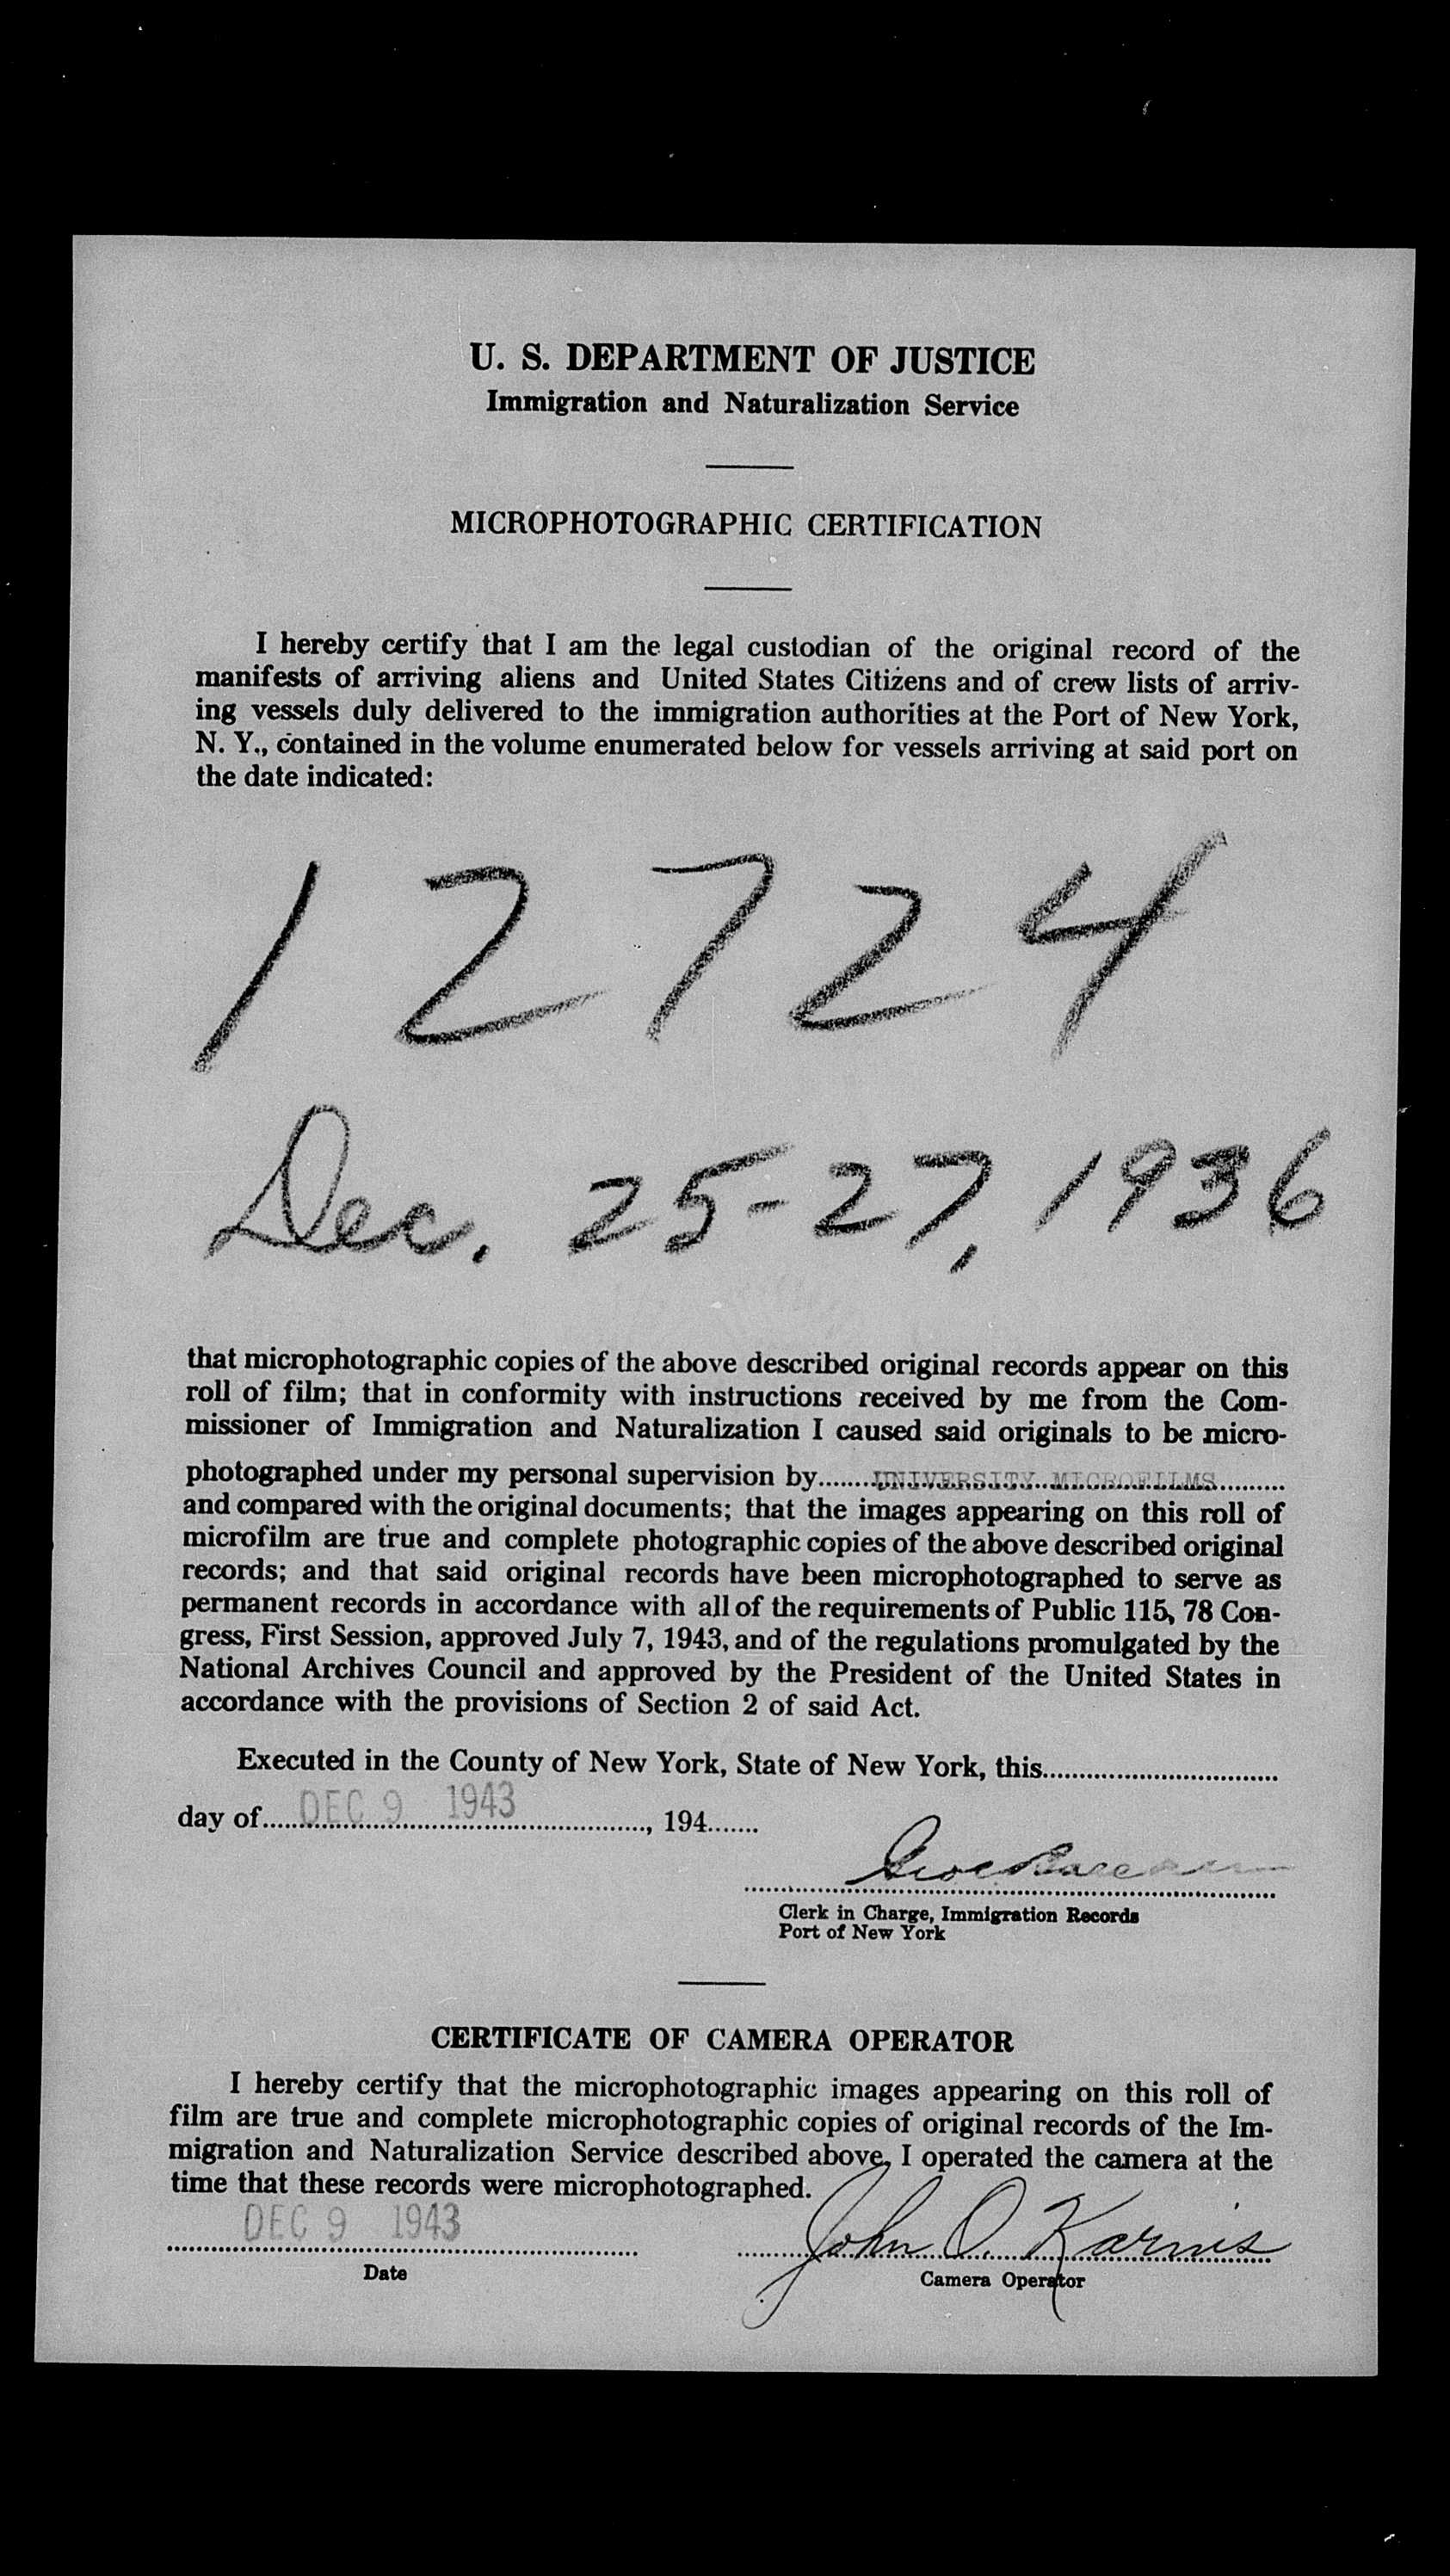 U. S. DEPARTMENT OF JUSTICE
Immigration and Naturalization Service
MICROPHOTOGRAPHIC CERTIFICATION
I hereby certify that I am the legal custodian of the original record of the
manifests of arriving aliens and United States Citizens and of crew lists of arriv-
ing vessels duly delivered to the immigration authorities at the Port of New York,
N. Y., contained in the volume enumerated below for vessels arriving at said port on
the date indicated:
12724
Dec. 25-27, 1936
that microphotographic copies of the above described original records appear on this
roll of film; that in conformity with instructions received by me from the Com-
missioner of Immigration and Naturalization I caused said originals to be micro-
photographed under my personal supervision by........UNIVERSITY MICROFILMS..........
and compared with the original documents; that the images appearing on this roll of
microfilm are true and complete photographic copies of the above described original
records; and that said original records have been microphotographed to serve as
permanent records in accordance with all of the requirements of Public 115, 78 Con-
gress, First Session, approved July 7, 1943, and of the regulations promulgated by the
National Archives Council and approved by the President of the United States in
accordance with the provisions of Section 2 of said Act.
Executed in the County of New York, State of New York, this................................
day of.....DEC 9 1943....................., 194.......
Clerk in Charge, Immigration Records
Port of New York
CERTIFICATE OF CAMERA OPERATOR
I hereby certify that the microphotographic images appearing on this roll of
film are true and complete microphotographic copies of original records of the Im-
migration and Naturalization Service described above, I operated the camera at the
time that these records were microphotographed.
DEC 9 1943 John O. Karnis
Date Camera Operator